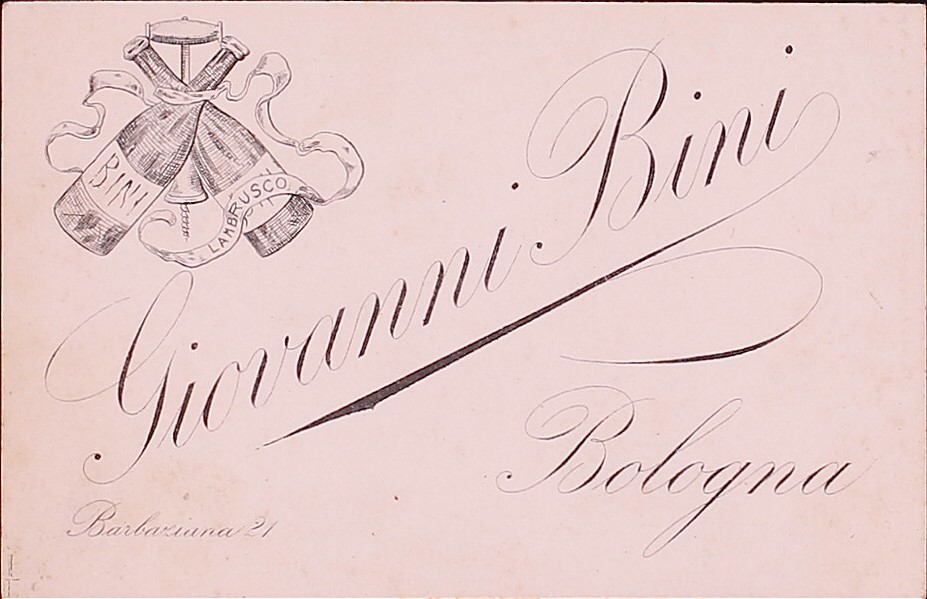 BINI
LAMBRUSCO
Giovanni Bini
Bologna
Barbaziana 21